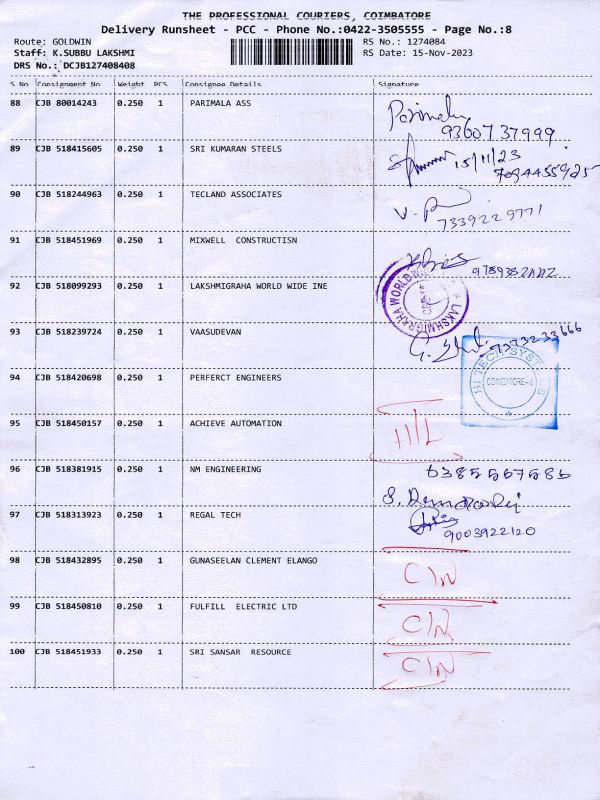 THE PROFESSIONAL COURIERS, COIMBATORE
Delivery Runsheet - PCC - Phone No.:0422-3505555 - Page No.:8
Route: GOLDWIN RS No.: 1274084
Staff: K.SUBBU LAKSHMI RS Date: 15-Nov-2023
DRS No.: DCJB127408408
S No Consignment No Weight PCS Consignee Details Signature
88 CJB 80014243 0.250 1 PARIMALA ASS Parimala
9360737999
89 CJB 518415605 0.250 1 SRI KUMARAN STEELS 15/11/23
7094455925
90 CJB 518244963 0.250 1 TECLAND ASSOCIATES
7339229771
91 CJB 518451969 0.250 1 MIXWELL CONSTRUCTISN
92 CJB 518099293 0.250 1 LAKSHMIGRAHA WORLD WIDE INE LAKSHMIGRAHA WORLD
93 CJB 518239724 0.250 1 VAASUDEVAN
94 CJB 518420698 0.250 1 PERFERCT ENGINEERS HI TECH SYSTEMS
COIMBATORE
95 CJB 518450157 0.250 1 ACHIEVE AUTOMATION H/L
96 CJB 518381915 0.250 1 NM ENGINEERING 6385567586
97 CJB 518313923 0.250 1 REGAL TECH
9003922120
98 CJB 518432895 0.250 1 GUNASEELAN CLEMENT ELANGO C/N
99 CJB 518450810 0.250 1 FULFILL ELECTRIC LTD C/N
100 CJB 518451933 0.250 1 SRI SANSAR RESOURCE C/N